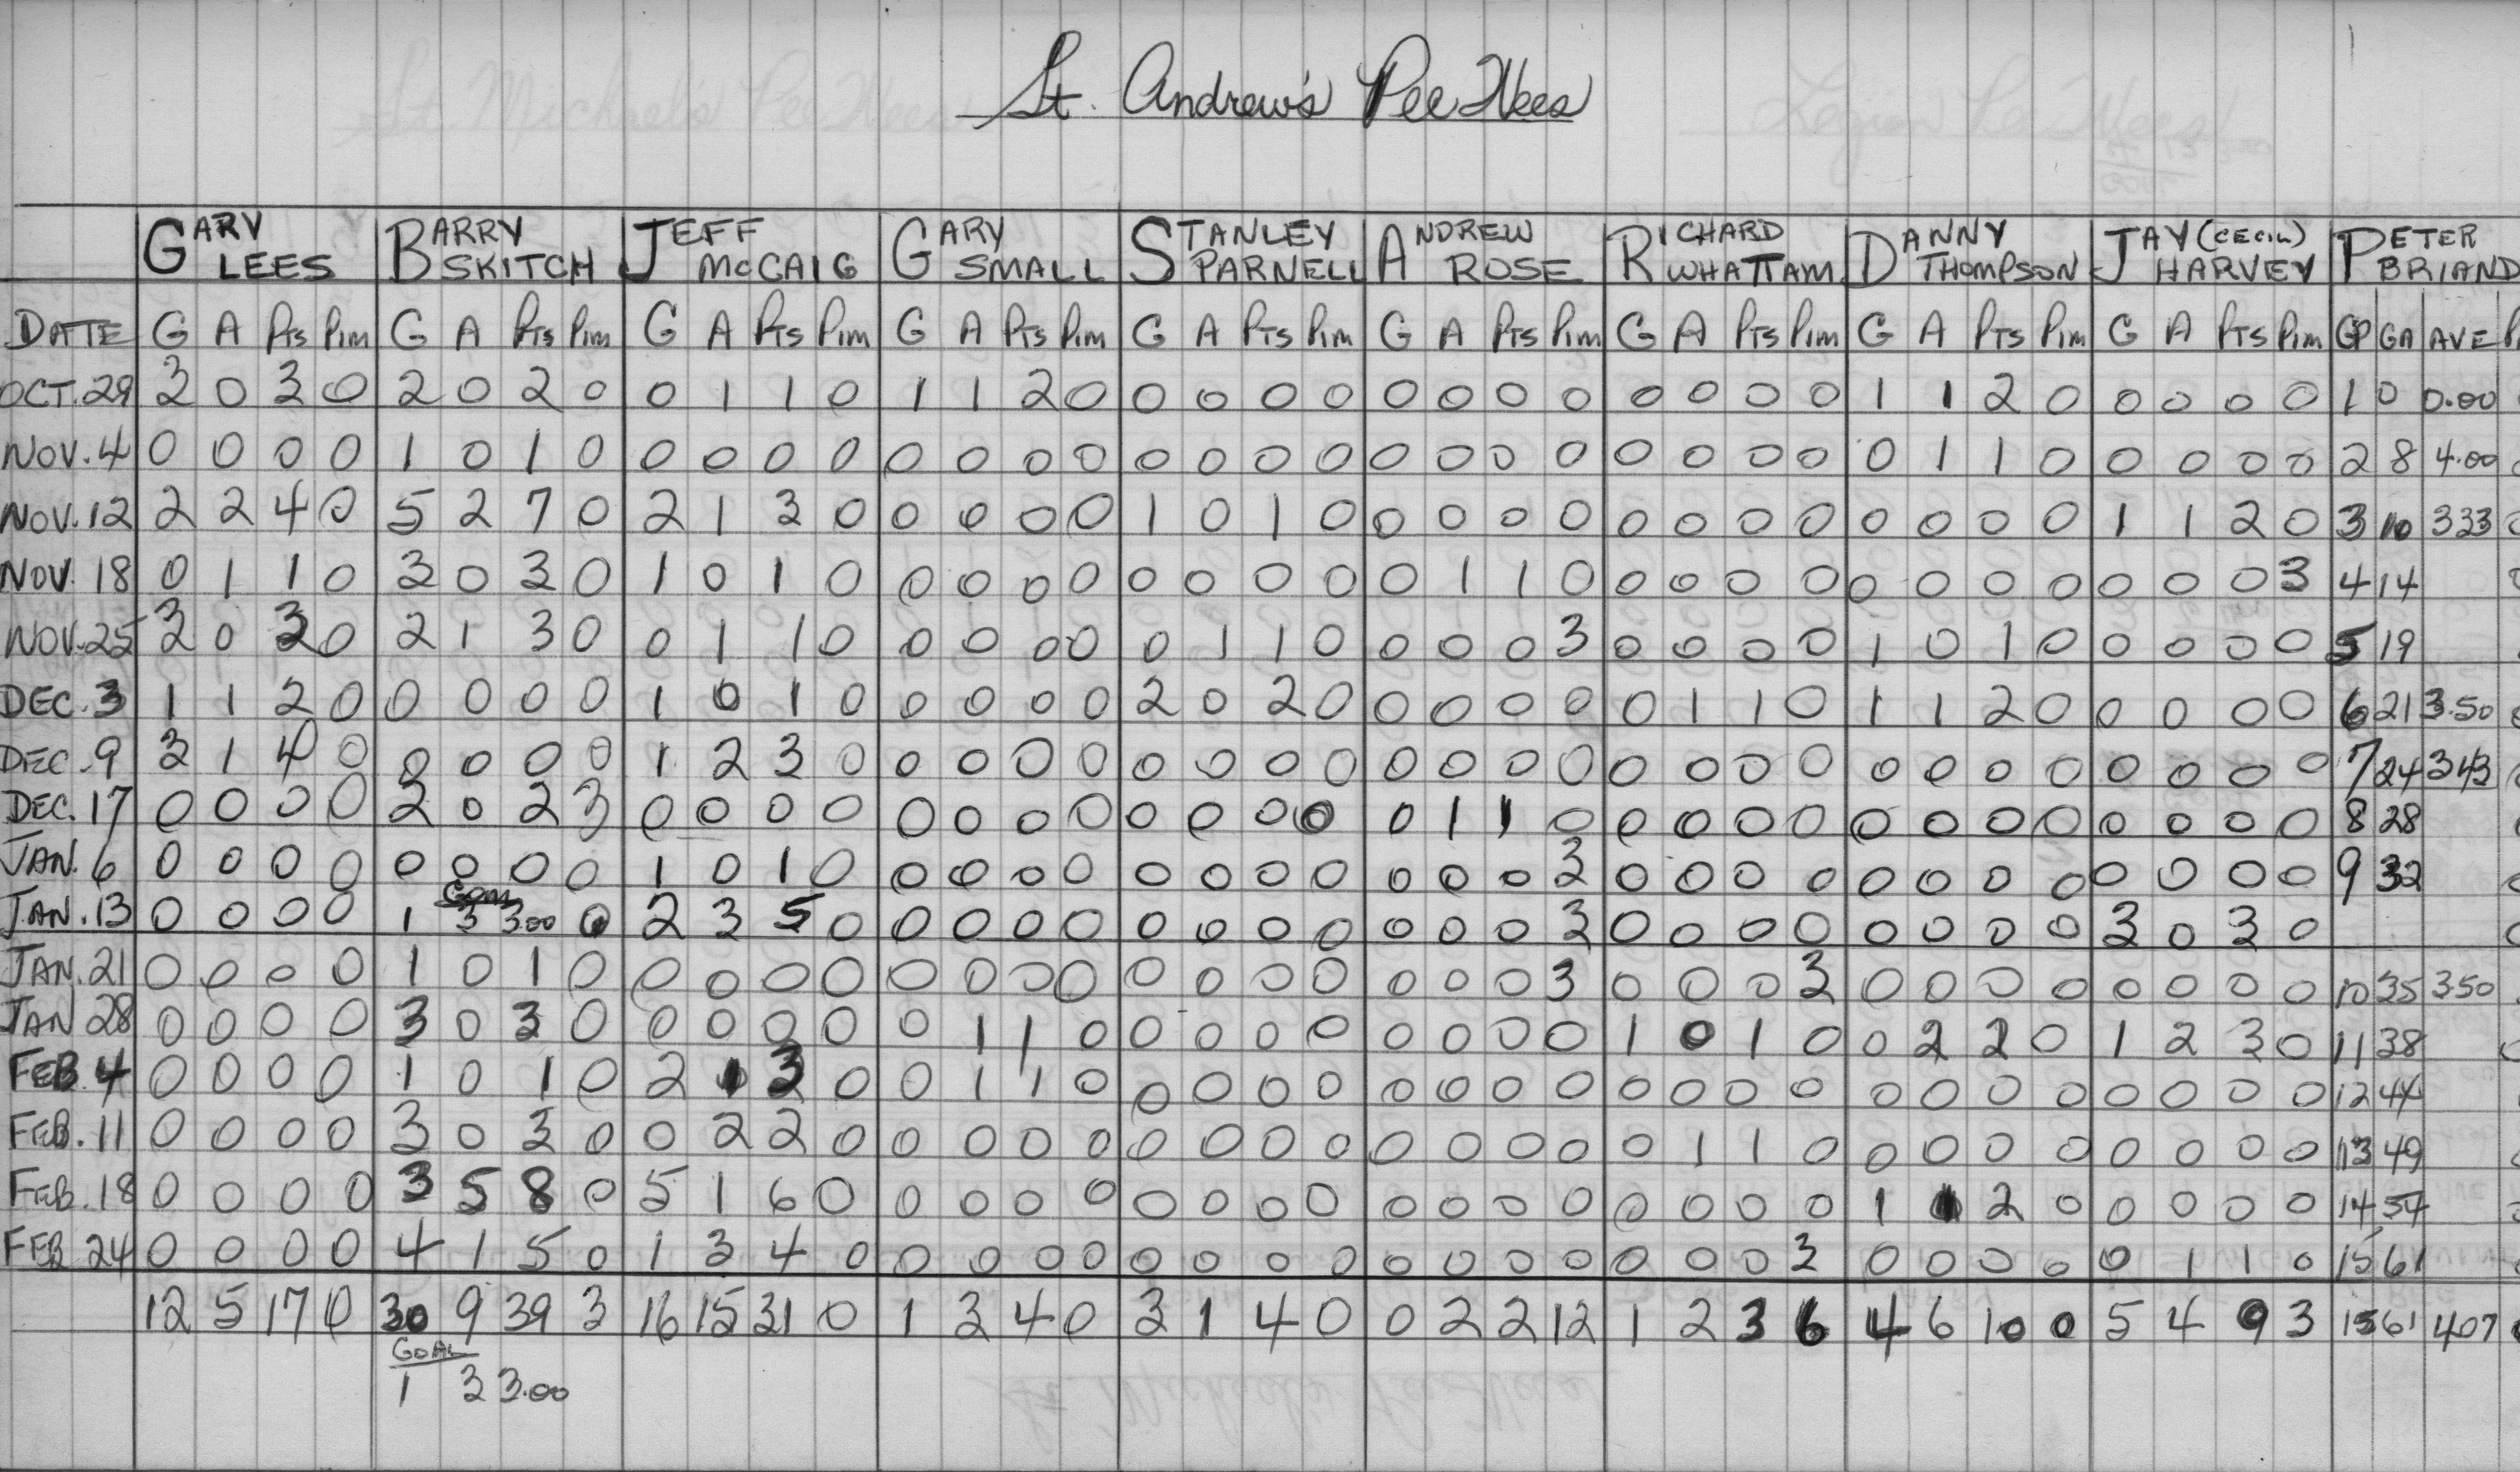 St. Andrew's Pee Wees
GARY LEES BARRY SKITCH JEFF McCAIG GARY SMALL STANLEY PARNELL ANDREW ROSE RICHARD WHATTAM DANNY THOMPSON JAY (CECIL) HARVEY PETER BRIAND
DATE G A Pts Pim G A Pts Pim G A Pts Pim G A Pts Pim G A Pts Pim G A Pts Pim G A Pts Pim G A Pts Pim G A Pts Pim GP GA AVE
OCT. 29 3 0 3 0 2 0 2 0 0 1 1 0 1 1 2 0 0 0 0 0 0 0 0 0 0 0 0 0 1 1 2 0 0 0 0 0 1 0 0.00
NOV. 4 0 0 0 0 1 0 1 0 0 0 0 0 0 0 0 0 0 0 0 0 0 0 0 0 0 0 0 0 0 1 1 0 0 0 0 0 2 8 4.00
NOV. 12 2 2 4 0 5 2 7 0 2 1 3 0 0 0 0 0 1 0 1 0 0 0 0 0 0 0 0 0 0 0 0 0 1 1 2 0 3 10 333
NOV. 18 0 1 1 0 3 0 3 0 1 0 1 0 0 0 0 0 0 0 0 0 0 1 1 0 0 0 0 0 0 0 0 0 0 0 0 3 4 14
NOV. 25 3 0 3 0 2 1 3 0 0 1 1 0 0 0 0 0 0 1 1 0 0 0 0 3 0 0 0 0 1 0 1 0 0 0 0 0 5 19
DEC. 3 1 1 2 0 0 0 0 0 1 0 1 0 0 0 0 0 2 0 2 0 0 0 0 0 0 1 1 0 1 1 2 0 0 0 0 0 6 21 3.50
DEC. 9 3 1 4 0 0 0 0 0 1 2 3 0 0 0 0 0 0 0 0 0 0 0 0 0 0 0 0 0 0 0 0 0 0 0 0 0 7 24 343
DEC. 17 0 0 0 0 2 0 2 3 0 0 0 0 0 0 0 0 0 0 0 0 0 1 1 0 0 0 0 0 0 0 0 0 0 0 0 0 8 28
JAN. 6 0 0 0 0 0 0 0 0 1 0 1 0 0 0 0 0 0 0 0 0 0 0 0 3 0 0 0 0 0 0 0 0 0 0 0 0 9 32
JAN. 13 0 0 0 0 1 3 3.00 0 2 3 5 0 0 0 0 0 0 0 0 0 0 0 0 3 0 0 0 0 0 0 0 0 3 0 3 0
JAN. 21 0 0 0 0 1 0 1 0 0 0 0 0 0 0 0 0 0 0 0 0 0 0 0 3 0 0 0 3 0 0 0 0 0 0 0 0 10 35 350
JAN 28 0 0 0 0 3 0 3 0 0 0 0 0 0 1 1 0 0 0 0 0 0 0 0 0 1 0 1 0 0 2 2 0 1 2 3 0 11 38
FEB. 4 0 0 0 0 1 0 1 0 2 1 3 0 0 1 1 0 0 0 0 0 0 0 0 0 0 0 0 0 0 0 0 0 0 0 0 0 12 44
FEB. 11 0 0 0 0 3 0 3 0 0 2 2 0 0 0 0 0 0 0 0 0 0 0 0 0 0 1 1 0 0 0 0 0 0 0 0 0 13 49
FEB. 18 0 0 0 0 3 5 8 0 5 1 6 0 0 0 0 0 0 0 0 0 0 0 0 0 0 0 0 0 1 1 2 0 0 0 0 0 14 54
FEB 24 0 0 0 0 4 1 5 0 1 3 4 0 0 0 0 0 0 0 0 0 0 0 0 0 0 0 0 3 0 0 0 0 0 1 1 0 15 61
12 5 17 0 30 9 39 3 16 15 31 0 1 3 4 0 3 1 4 0 0 2 2 12 1 2 3 6 4 6 10 0 5 4 9 3 15 61 407
GOAL
1 3 3.00